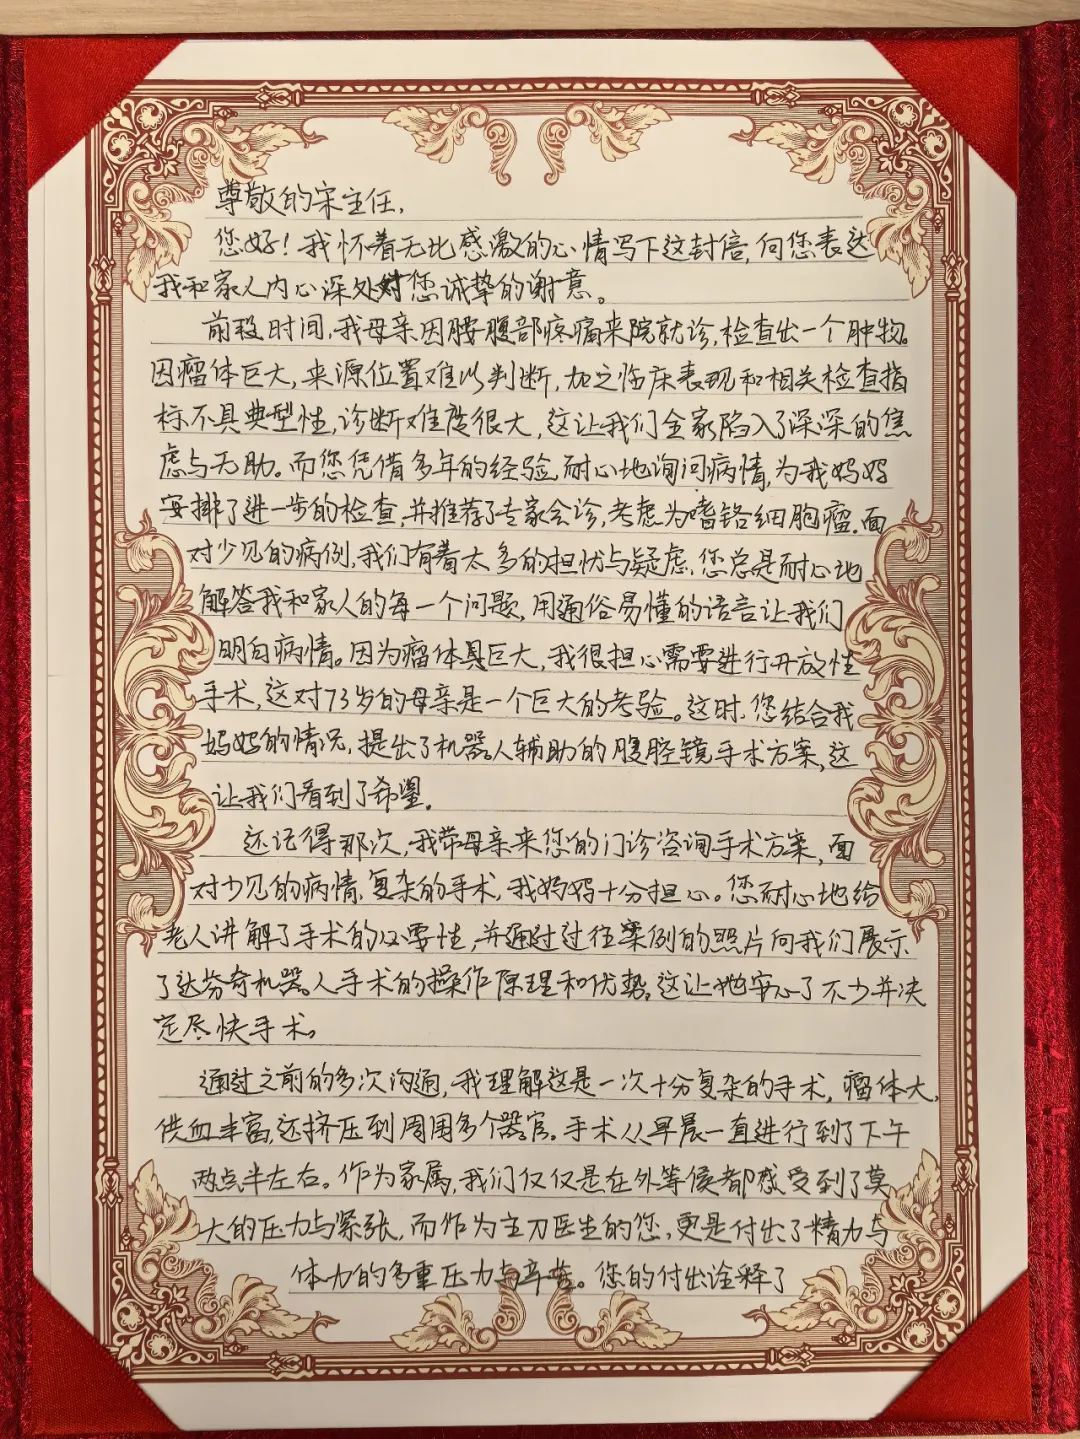 尊敬的宋主任,
您好!我怀着无比感激的心情写下这封信,向您表达
我和家人内心深处对您诚挚的谢意。
前段时间,我母亲因腰腹部疼痛来院就诊,检查出一个肿物。
因瘤体巨大,来源位置难以判断,加之临床表现和相关检查指
标不具典型性,诊断难度很大,这让我们全家陷入了深深的焦
虑与无助。而您凭借多年的经验,耐心地询问病情,为我妈妈
安排了进一步的检查,并推荐了专家会诊,考虑为嗜铬细胞瘤.面
对少见的病例,我们有着太多的担忧与疑虑,您总是耐心地
解答我和家人的每一个问题,用通俗易懂的语言让我们
明白病情。因为瘤体具巨大,我很担心需要进行开放性
手术,这对73岁的母亲是一个巨大的考验。这时,您结合我
妈妈的情况,提出了机器人辅助的腹腔镜手术方案,这
让我们看到了希望.
还记得那次,我带母亲来您的门诊咨询手术方案,面
对少见的病情,复杂的手术,我妈妈十分担心。您耐心地给
老人讲解了手术的必要性,并通过过往案例的照片向我们展示
了达芬奇机器人手术的操作原理和优势,这让她安心了不少并决
定尽快手术。
通过之前的多次沟通,我理解这是一次十分复杂的手术,瘤体大,
供血丰富,还挤压到周围多个器官。手术从早晨一直进行到了下午
两点半左右。作为家属,我们仅仅是在外等候都感受到了莫
大的压力与紧张,而作为主刀医生的您,更是付出了精力与
体力的多重压力与辛苦。您的付出诠释了